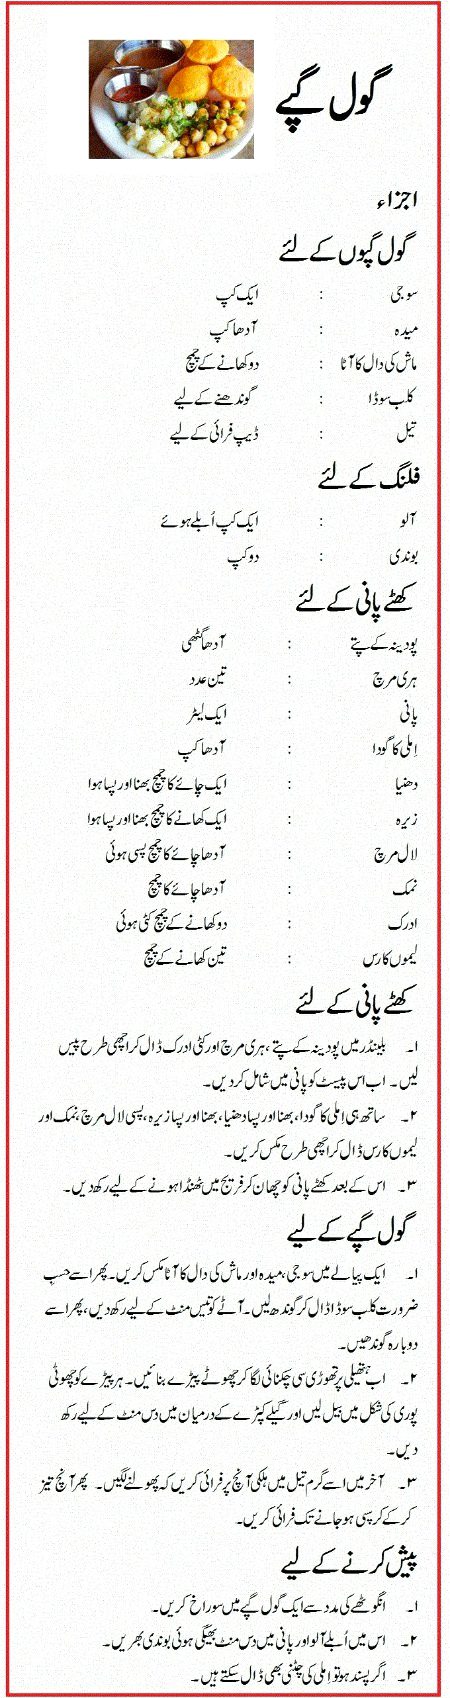 گول گپے
اجزاء
گول گپوں کے لئے
سوجی : ایک کپ
میدہ : آدھا کپ
ماش کی دال کا آٹا : دو کھانے کے چمچ
کلب سوڈا : گوندھنے کے لیے
تیل : ڈیپ فرائی کے لیے
فلنگ کے لئے
آلو : ایک کپ اُبلے ہوئے
بوندی : دو کپ
کھٹے پانی کے لئے
پودینہ کے پتے : آدھا گٹھی
ہری مرچ : تین عدد
پانی : ایک لیٹر
اِملی کا گودا : آدھا کپ
دھنیا : ایک چائے کا چمچ بھنا اور پسا ہوا
زیرہ : ایک کھانے کا چمچ بھنا اور پسا ہوا
لال مرچ : آدھا چائے کا چمچ پسی ہوئی
نمک : آدھا چائے کا چمچ
ادرک : دو کھانے کے چمچ کٹی ہوئی
لیموں کا رس : تین کھانے کے چمچ
کھٹے پانی کے لئے
۱۔ بلینڈر میں پودینہ کے پتے، ہری مرچ اور کٹی ادرک ڈال کر اچھی طرح پیس
لیں۔ اب اس پیسٹ کو پانی میں شامل کردیں۔
۲۔ ساتھ ہی اِملی کا گودا، بھنا اور پسا دھنیا، بھنا اور پسا زیرہ، پسی لال مرچ، نمک اور
لیموں کا رس ڈال کر اچھی طرح مکس کریں۔
۳۔ اس کے بعد کھٹے پانی کو چھان کر فریج میں ٹھنڈا ہونے کے لیے رکھ دیں۔
گول گپے کے لیے
۱۔ ایک پیالے میں سوجی، میدہ اور ماش کی دال کا آٹا مکس کریں۔ پھر اسے حسبِ
ضرورت کلب سوڈا ڈال کر گوندھ لیں۔ آٹے کو تیس منٹ کے لیے رکھ دیں، پھر اسے
دوبارہ گوندھیں۔
۲۔ اب ہتھیلی پر تھوڑی سی چکنائی لگا کر چھوٹے پیڑے بنائیں۔ ہر پیڑے کو چھوٹی
پوری کی شکل میں بیل لیں اور گیلے کپڑے کے درمیان میں دس منٹ کے لیے رکھ
دیں۔
۳۔ آخر میں اسے گرم تیل میں ہلکی آنچ پر فرائی کریں کہ پھولنے لگیں۔ پھر آنچ تیز
کر کے کرسپی ہوجانے تک فرائی کریں۔
پیش کرنے کے لیے
۱۔ انگوٹھے کی مدد سے ایک گول گپے میں سوراخ کریں۔
۲۔ اس میں اُبلے آلو اور پانی میں دس منٹ بھیگی ہوئی بوندی بھریں۔
۳۔ اگر پسند ہو تو اِملی کی چٹنی بھی ڈال سکتے ہیں۔